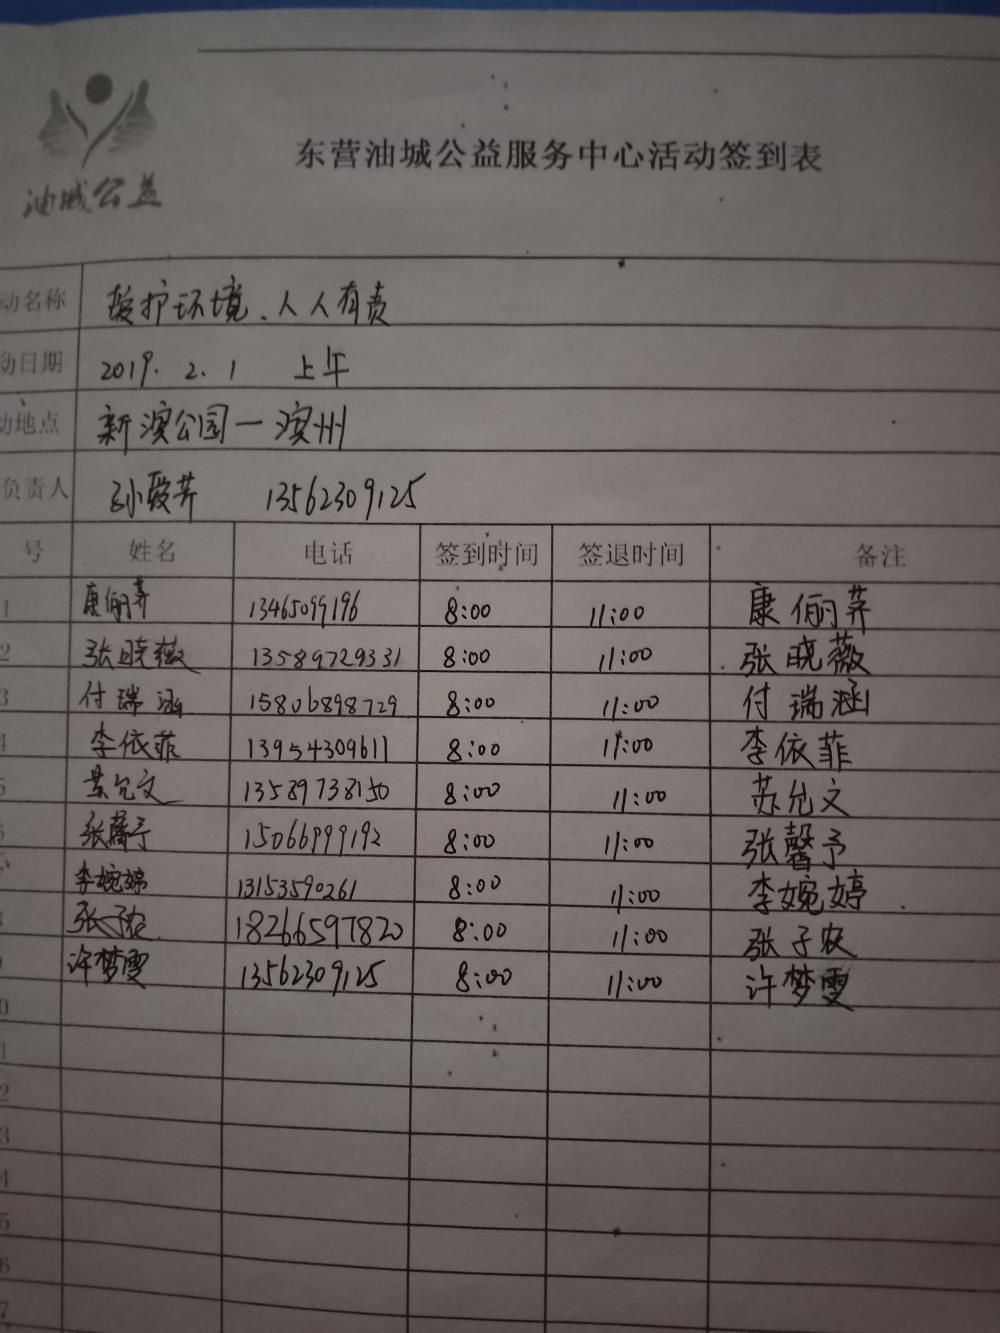 东营油城公益服务中心活动签到表
油城公益
动名称 爱护环境、人人有责
动日期 2019. 2. 1 上午
动地点 新滨公园一滨州
负责人 孙爱荠 13562309125
号 姓名 电话 签到时间 签退时间 备注
1 康俪荠 13465099196 8:00 11:00 康俪荠
2 张晓薇 13589729331 8:00 11:00 张晓薇
3 付瑞涵 15806898729 8:00 11:00 付瑞涵
4 李依菲 13954309611 8:00 11:00 李依菲
5 苏允文 13589738150 8:00 11:00 苏允文
6 张馨予 15066999192 8:00 11:00 张馨予
李婉婷 13153590261 8:00 11:00 李婉婷
8 张子农 18266597820 8:00 11:00 张子农
9 许梦雯 13562309125 8:00 11:00 许梦雯
0
1
2
3
4
5
6
7